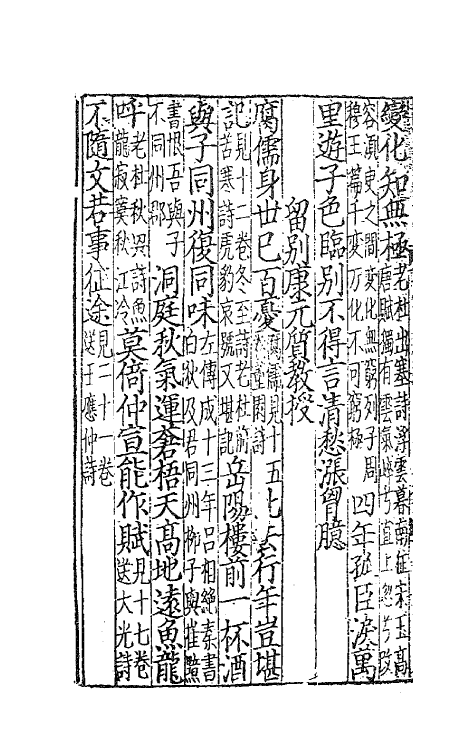 變化知無極老杜出塞詩浮雲暮南征宋玉高唐賦獨有雲氣崪兮直上忽兮改
容須臾之間變化無窮列子周穆王篇千變萬化不可窮極四年孤臣淚萬
里遊子色臨別不得言清愁漲胷臆
留別康元質教授
腐儒身世已百憂腐儒見十五詩此去行年豈堪
記見十二卷冬至詩老杜前苦寒詩虎豹哀號又堪記岳陽樓前一杯酒
與子同州復同味左傳成十三年呂相絶秦書白狄及君同州柳子與崔黯
書恨吾與子不同州部洞庭秋氣連蒼梧天高地遠魚龍
呼老杜秋興詩魚龍寂寞秋江冷莫倚仲宣能作賦見十七卷送大光詩
不隨文若事征途見二十一卷送王應仲詩